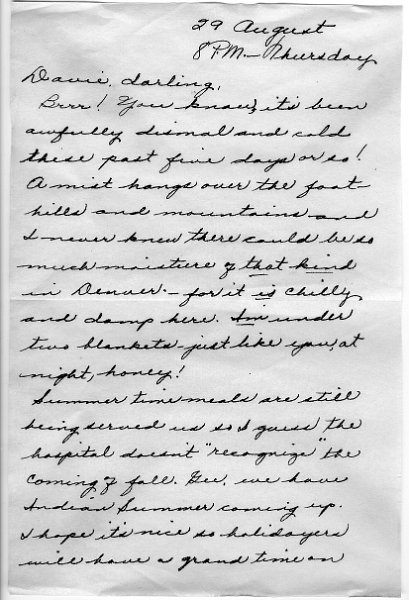 29 August
8 PM - Thursday
Davie, darling,
Brrr! You know, it's been
awfully dismal and cold
these past five days or so!
A mist hangs over the foot-
hills and mountains and
I never knew there could be so
much moisture of that kind
in Denver - for it is chilly
and damp here. I'm under
two blankets - just like you, at
night, honey!
Summer time meals are still
being served us so I guess the
hospital doesn't "recognize" the
coming of fall. Gee, we have
Indian Summer coming up.
I hope it's nice so holidayers
will have a grand time on